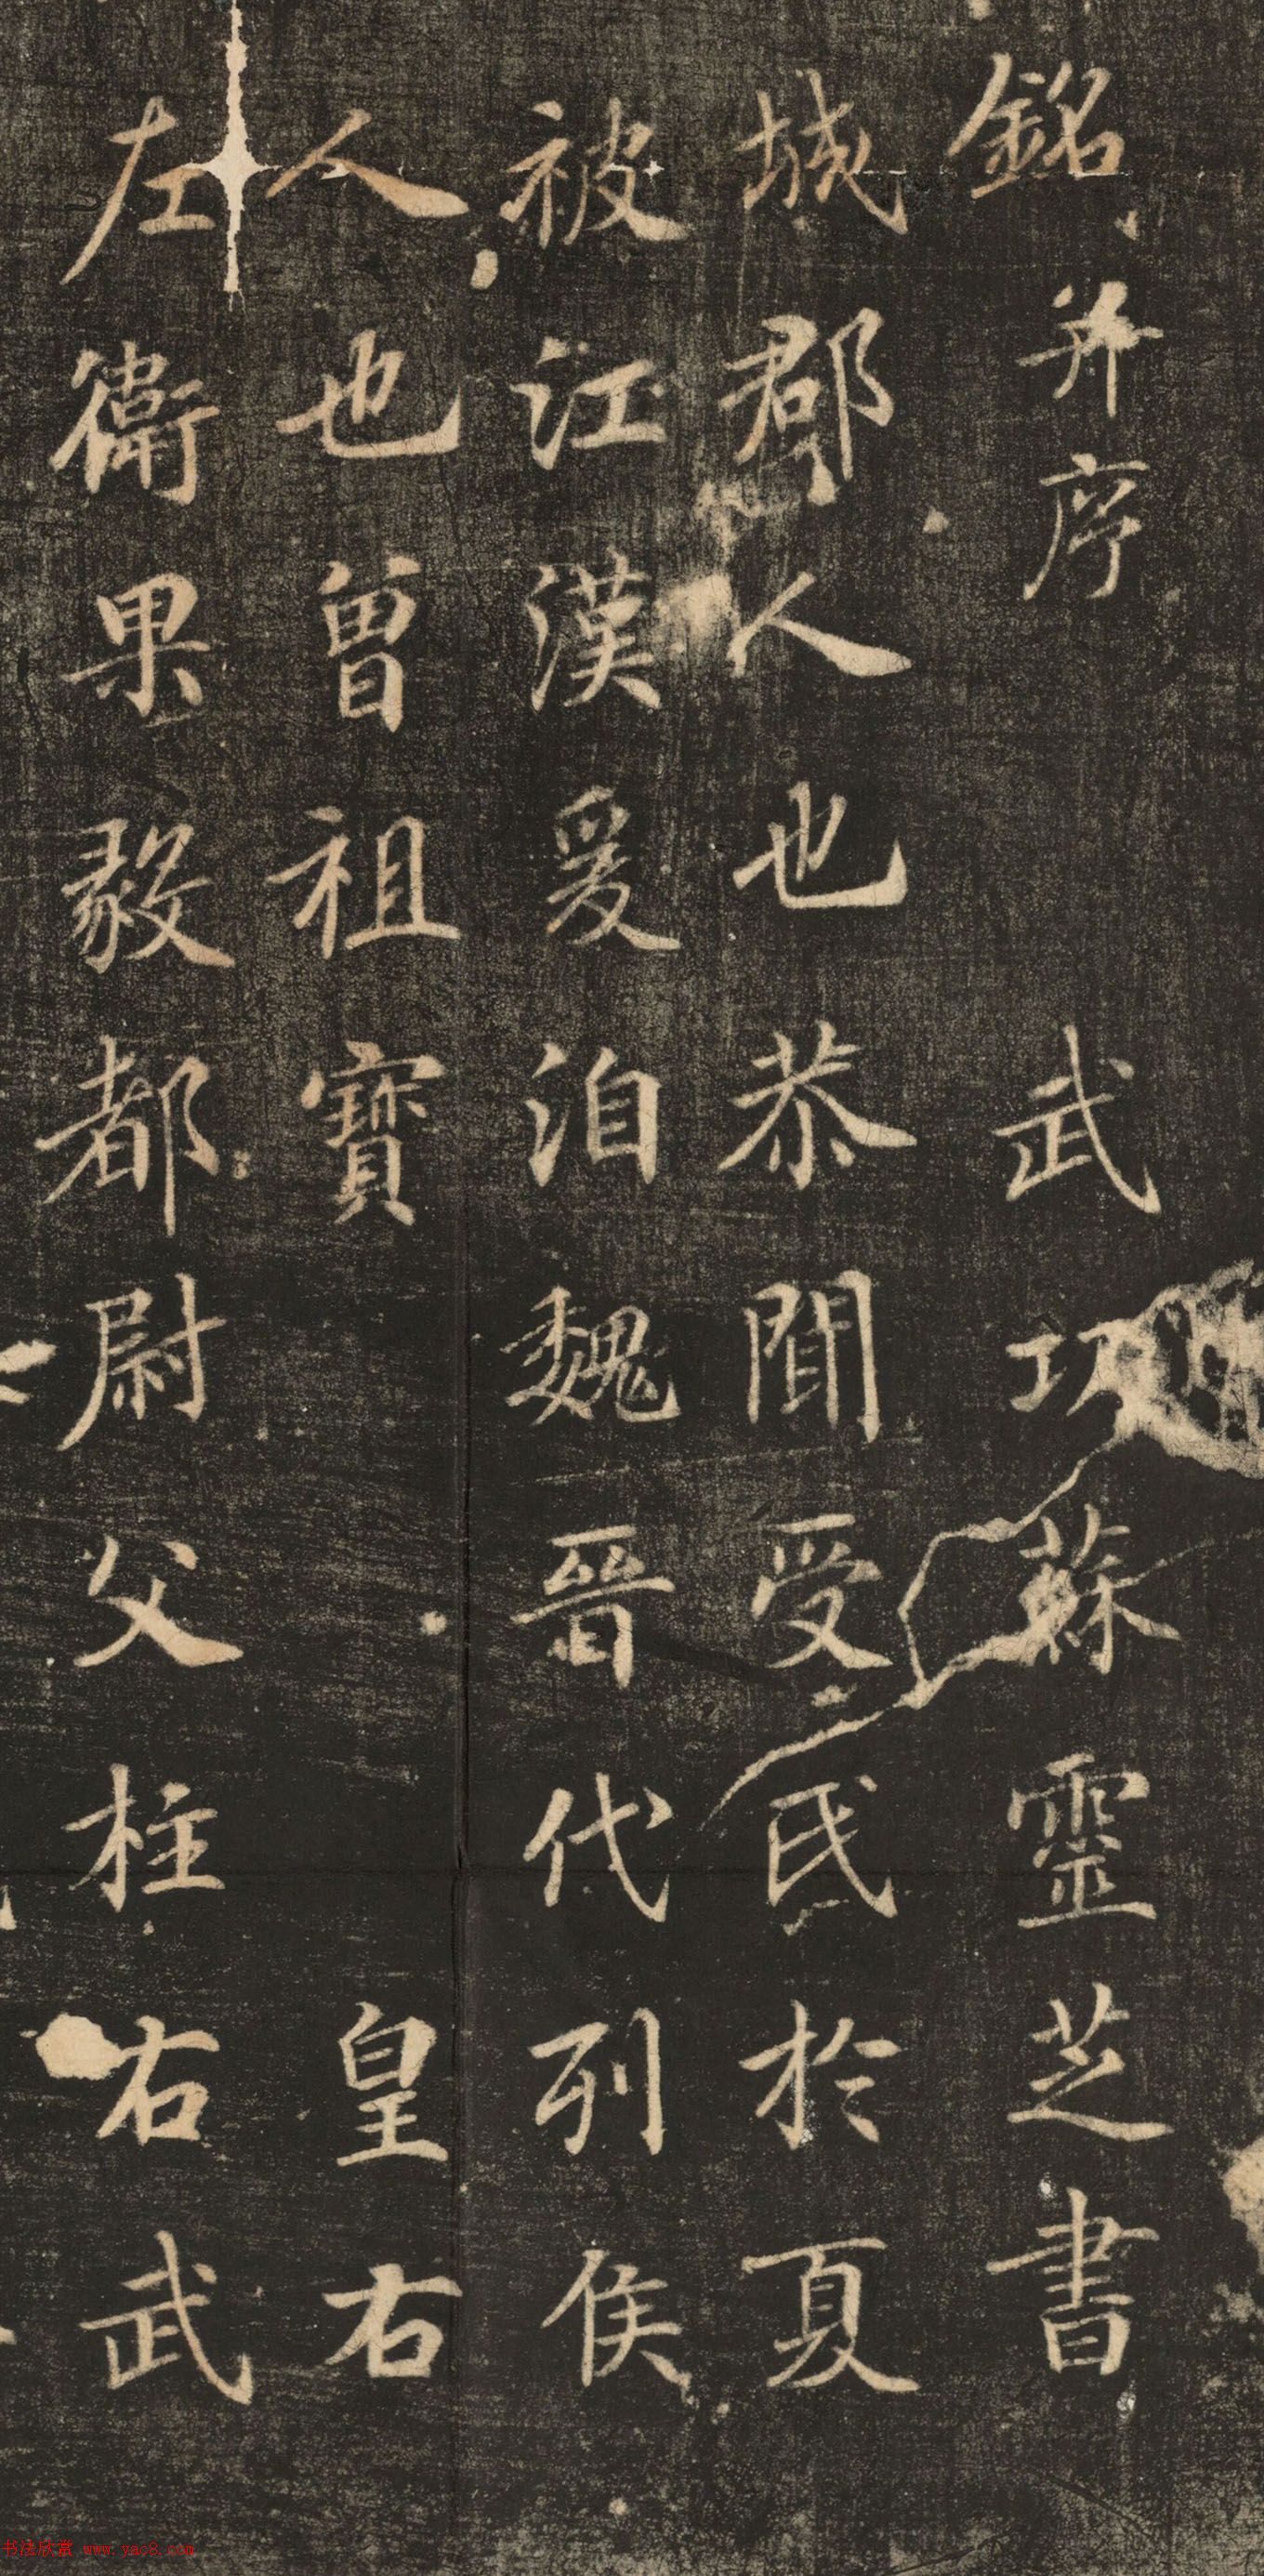 銘并序 武功蘇靈芝書
城郡人也恭聞受氏於夏
被江漢爰洎魏晉代列侯
人也曾祖寶 皇右
左衛果毅都尉父柱右武
书法欣赏 www.yac8.com